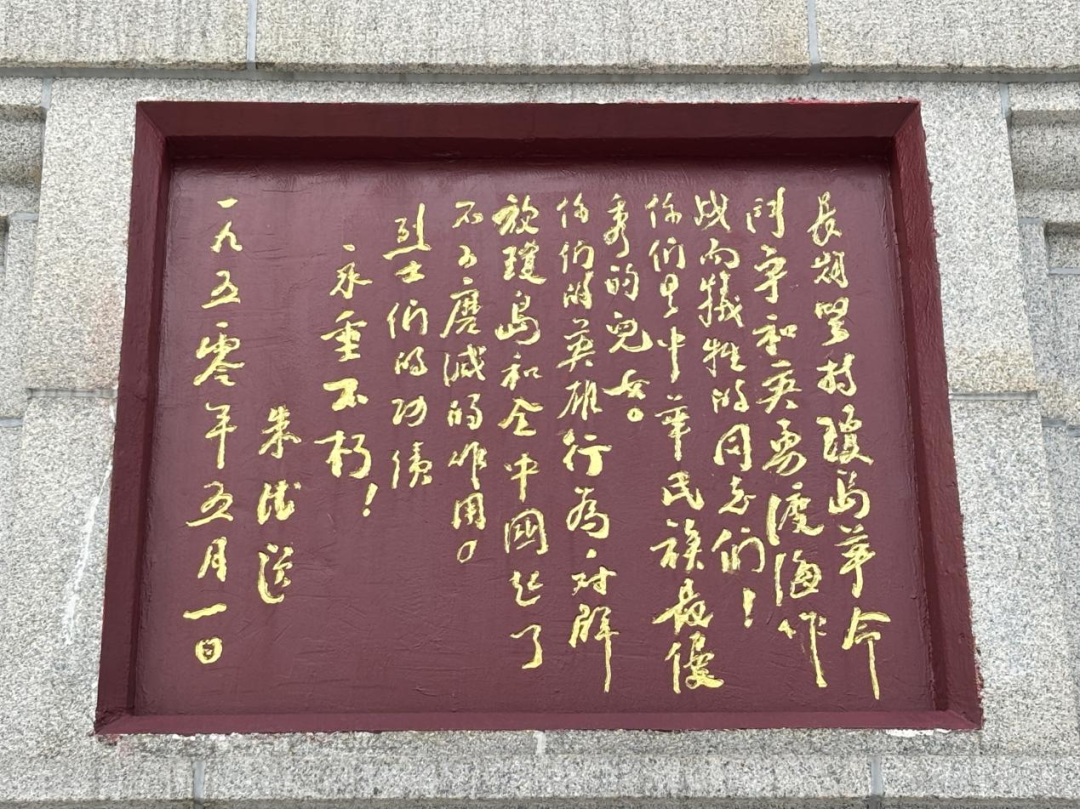 長期堅持瓊島革命
鬥争和英勇渡海作
战而犧牲的同志们！
你们是中華民族最優
秀的兒女。
你们的英雄行為，对解
放瓊島和全中國起了
不可磨滅的作用。
烈士们的功績
永垂不朽！
朱德
一九五零年五月一日